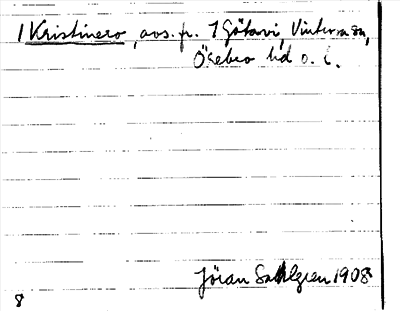 1 Kristinero, avs. fr. 1 Götavi, Vintrosa sn,
Örebro hd o. l.
Jöran Sahlgren 1908
8